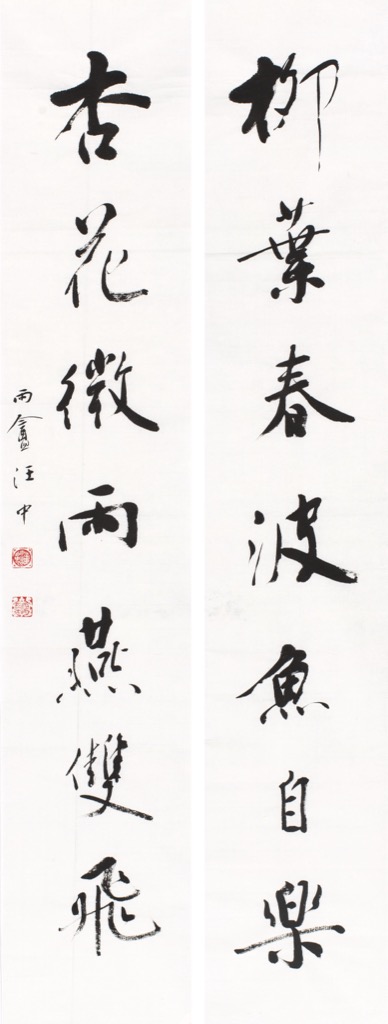 柳葉春波魚自樂
杏花微雨燕雙飛
雨盦汪中